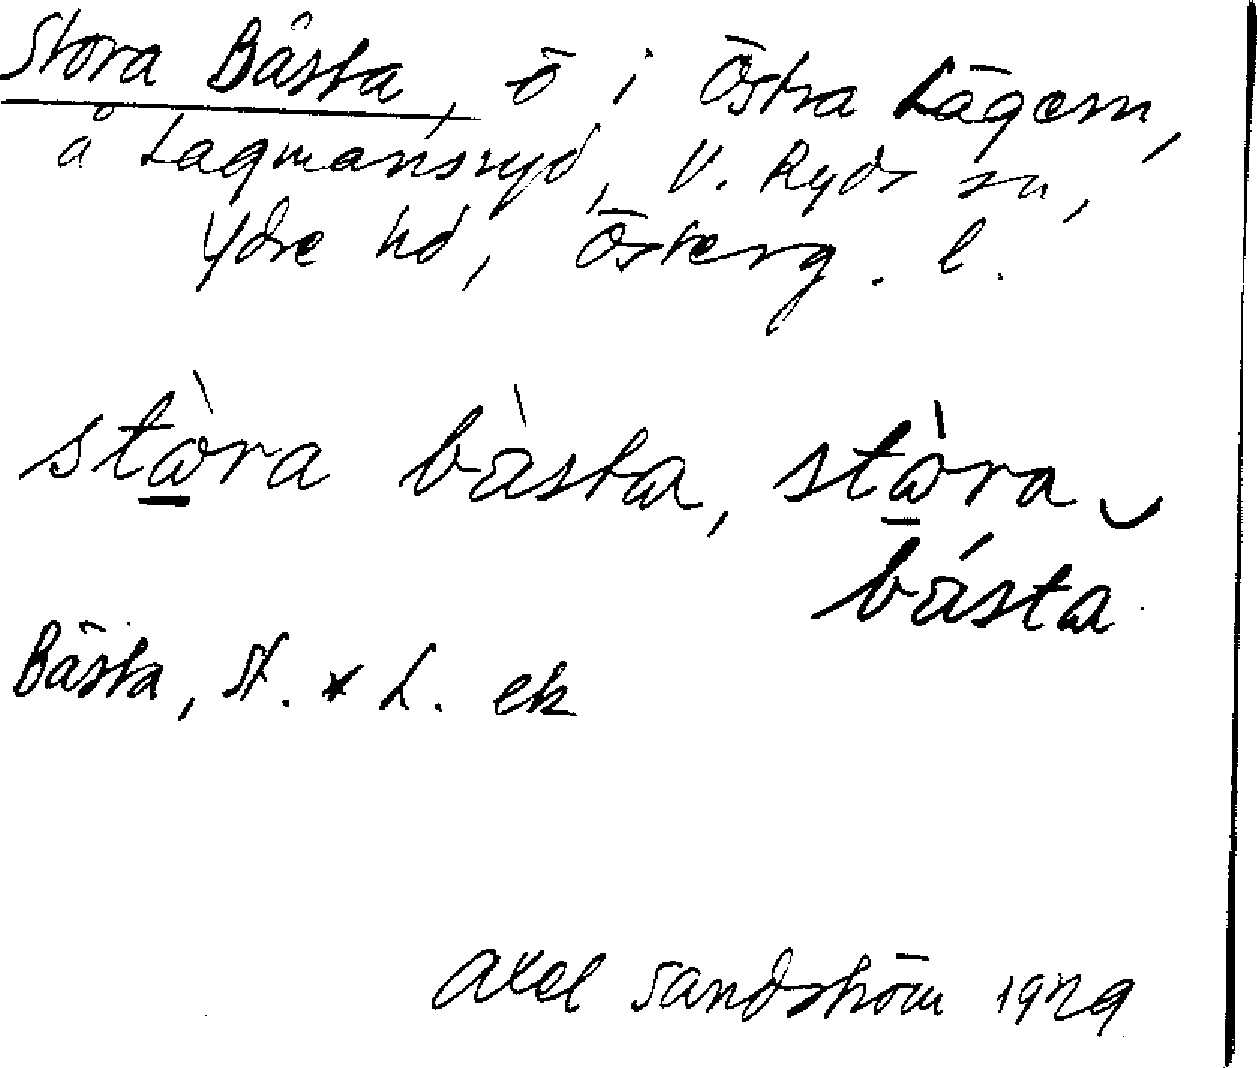 Stora Båsta, ö i Östra Lägern,
å Lagmansryd, V. Ryds sn,
Ydre hd, Österg. l.
stòra bàsta, stòra
básta
Båsta, St. * L. ek
Axel Sandström 1929